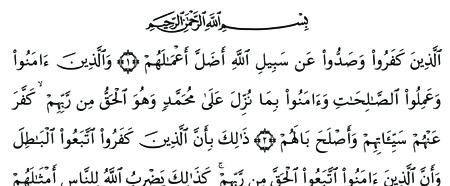 بِسْمِ اللَّهِ الرَّحْمَٰنِ الرَّحِيمِ
ٱلَّذِينَ كَفَرُوا۟ وَصَدُّوا۟ عَن سَبِيلِ ٱللَّهِ أَضَلَّ أَعْمَـٰلَهُمْ ﴿١﴾ وَٱلَّذِينَ ءَامَنُوا۟
وَعَمِلُوا۟ ٱلصَّـٰلِحَـٰتِ وَءَامَنُوا۟ بِمَا نُزِّلَ عَلَىٰ مُحَمَّدٍ وَهُوَ ٱلْحَقُّ مِن رَّبِّهِمْ ۙ كَفَّرَ
عَنْهُمْ سَيِّـَٔاتِهِمْ وَأَصْلَحَ بَالَهُمْ ﴿٢﴾ ذَٰلِكَ بِأَنَّ ٱلَّذِينَ كَفَرُوا۟ ٱتَّبَعُوا۟ ٱلْبَـٰطِلَ
وَأَنَّ ٱلَّذِينَ ءَامَنُوا۟ ٱتَّبَعُوا۟ ٱلْحَقَّ مِن رَّبِّهِمْ ۚ كَذَٰلِكَ يَضْرِبُ ٱللَّهُ لِلنَّاسِ أَمْثَـٰلَهُمْ